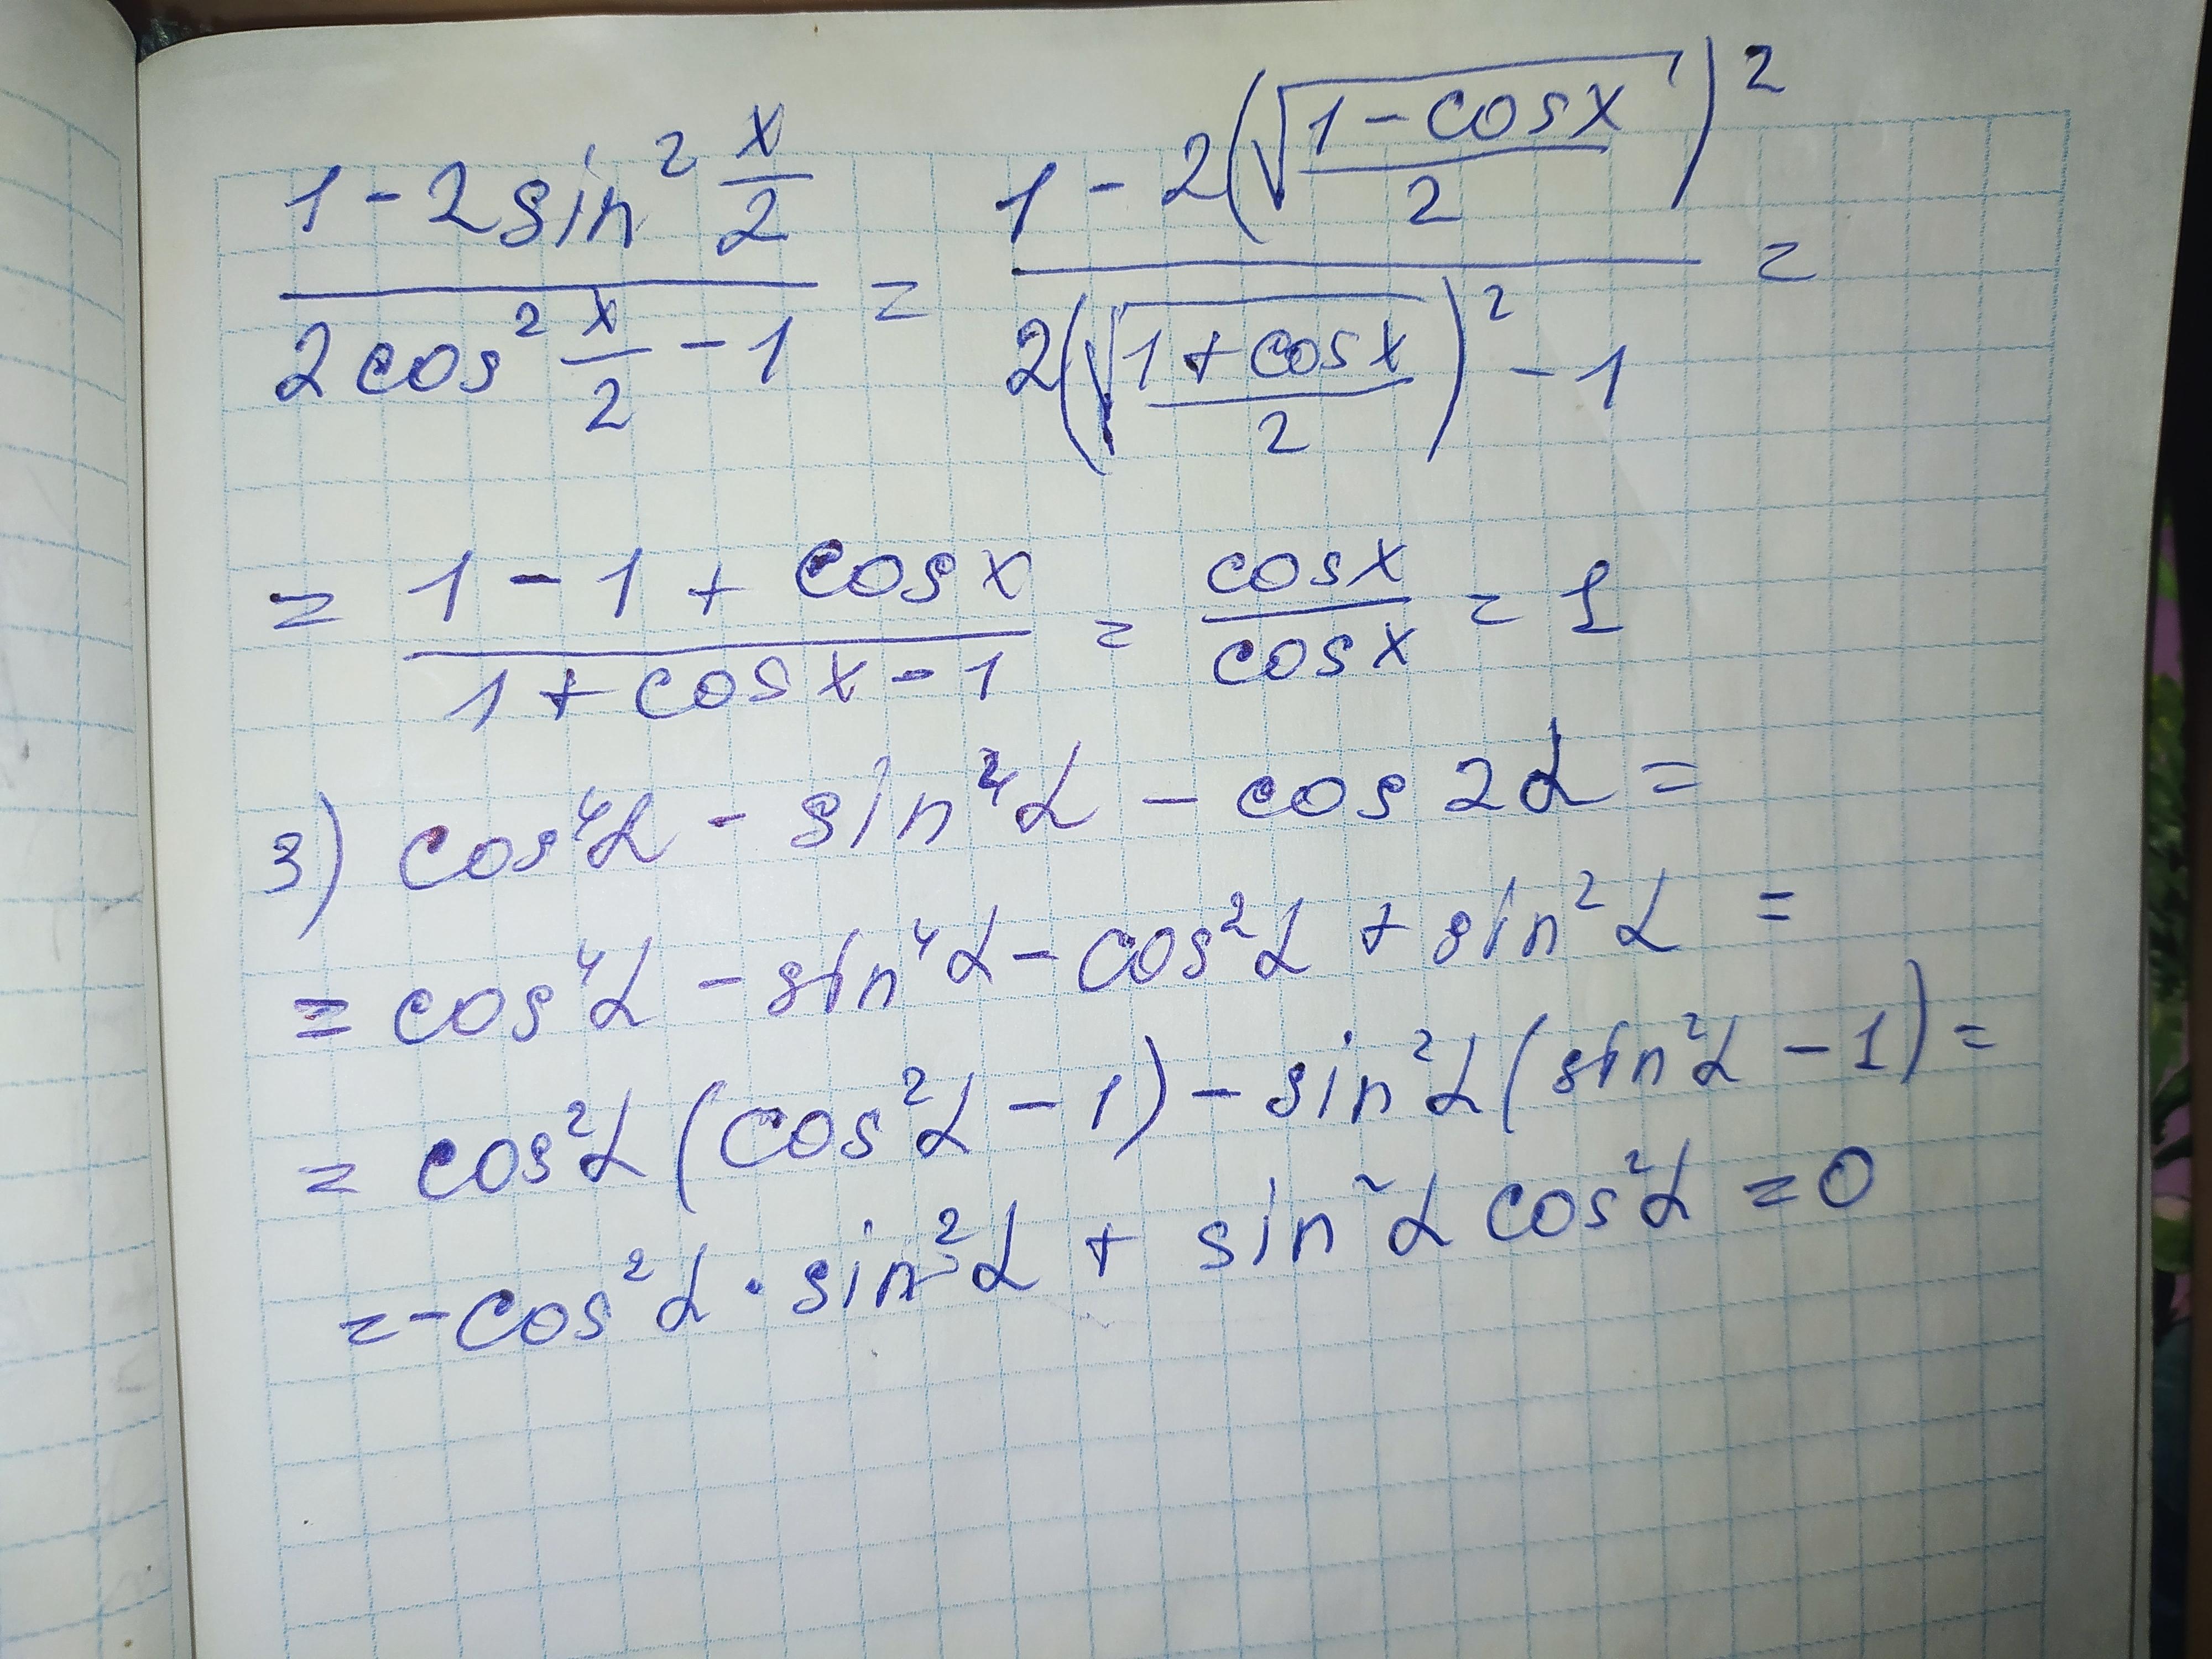 (1 - 2 sin² x/2) / (2 cos² x/2 - 1) = (1 - 2(√((1 - cos x)/2))²) / (2(√((1 + cos x)/2))² - 1) =
= (1 - 1 + cos x) / (1 + cos x - 1) = cos x / cos x = 1
3) cos⁴α - sin⁴α - cos 2α =
= cos⁴α - sin⁴α - cos²α + sin²α =
= cos²α (cos²α - 1) - sin²α (sin²α - 1) =
= - cos²α · sin²α + sin²α cos²α = 0